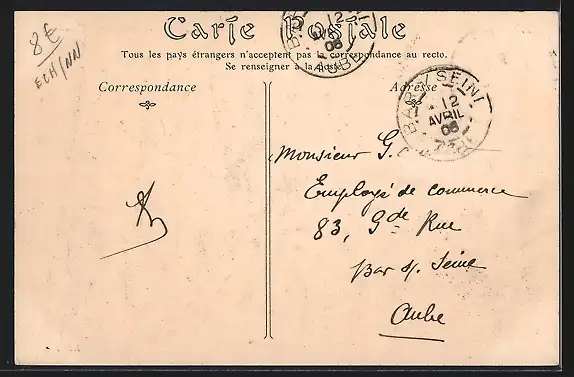 8€
ECH/NN
Carte Postale
Tous les pays étrangers n'acceptent pas la correspondance au recto.
Se renseigner à la Poste
Correspondance
Adresse
BAR
12
06
AUBE
BAR S/ SEINE
12
AVRIL
06
Monsieur G.
Employé de commerce
83, Gde Rue
Bar s/. Seine
Aube